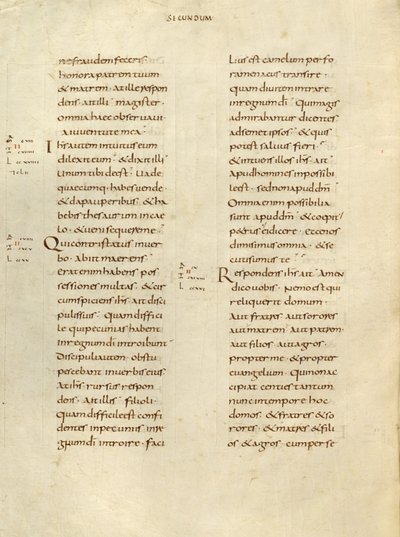 SECUNDUM
ne fraudem feceris
honora patrem tuum
& matrem · at ille respon
dens ait illi magister ·
omnia haec observavi
a iuventute mea ·
Ihs autem intuitus eum
dilexit eum · & dixit illi
Unum tibi deest · Uade
quaecumq · habes uende
& da pauperibus & ha
bebis thesaurum in cae
lo · & ueni sequere me ·
Qui contristatus in uer
bo · abiit maerens ·
erat enim habens pos
sessiones multas · & cir
cumspiciens ihs ait disci
pulis suis · Quam diffici
le qui pecunias habent
in regnum di introibunt ·
Discipuli autem · obstu
pescebant in uerbis eius
At ihs rursus respon
dens · Ait illis · filioli ·
Quam difficile est confi
dentes in pecuniis in re
gnum di introire · faci
lius est camelum per fo
ramen acus transire ·
quam diuitem intrare
in regnum di · Qui magis
admirabantur dicentes
ad semet ipsos · & quis
potest saluus fieri ·
& intuens illos ihs · ait
Apud homines impossibi
le est · sed non apud dm
Omnia enim possibilia
sunt apud dm · & coepit
petrus ei dicere · ecce nos
dimisimus omnia · & se
cuti sumus te ·
Respondens ihs ait · Amen
dico uobis · Nemo est qui
reliquerit domum ·
Aut fratres aut sorores
aut matrem aut patrem ·
aut filios aut agros ·
propter me & propter
euangelium · Qui non ac
cipiat centies tantum
nunc in tempore hoc
domos · & fratres & so
rores · & matres & fili
os & agros · cum perse